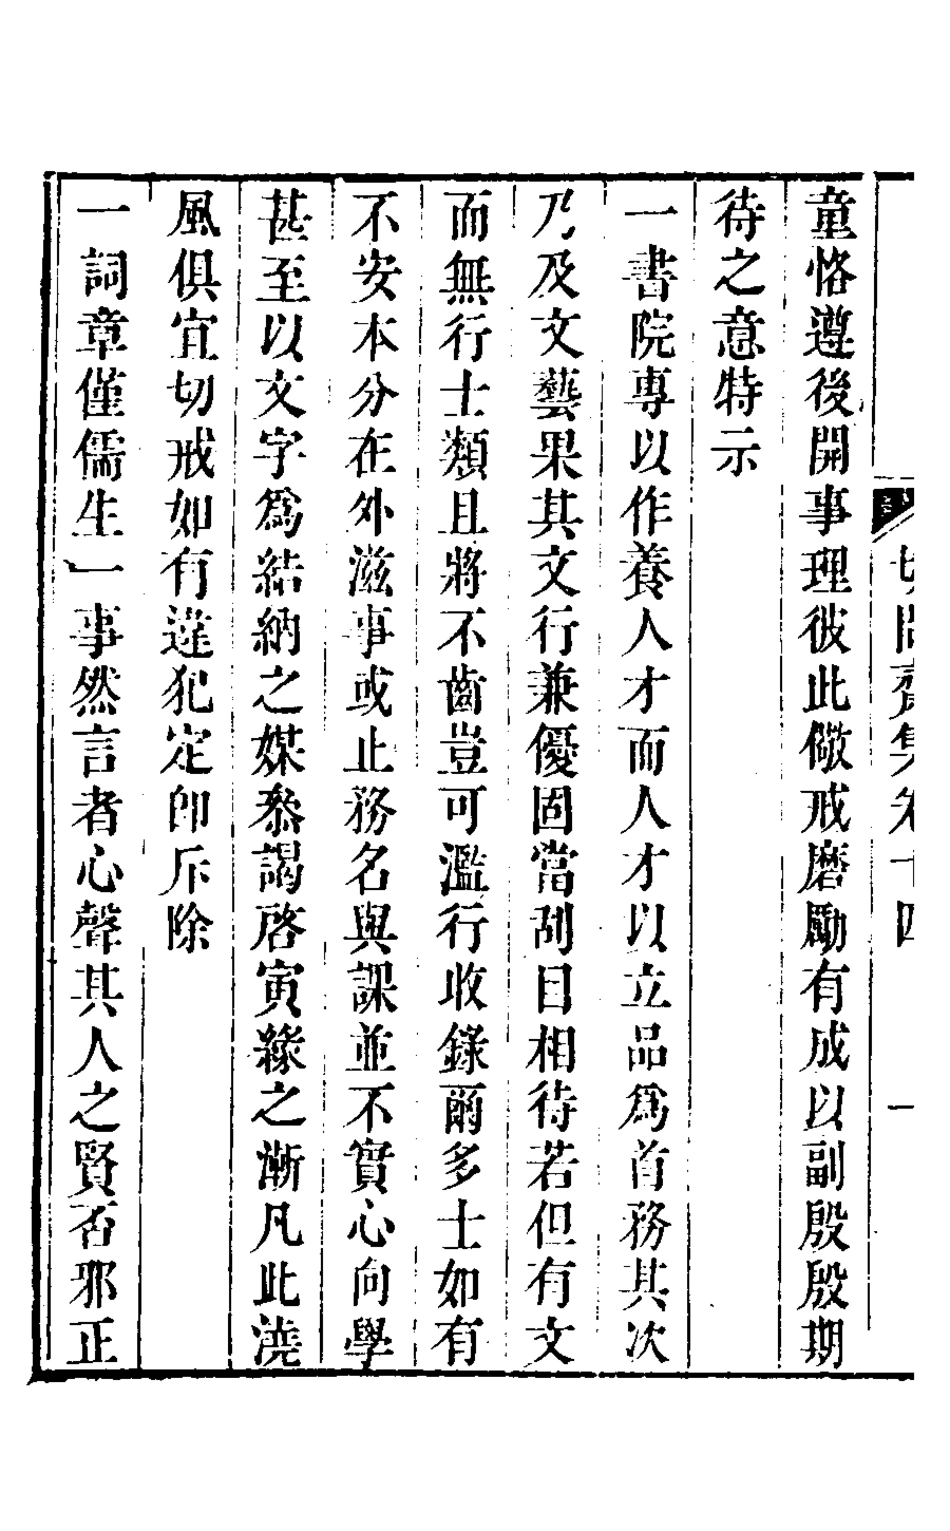 切問齋集卷十四
一
童恪遵後開事理彼此儆戒磨勵有成以副殷殷期
待之意特示
一書院專以作養人才而人才以立品爲首務其次
乃及文藝果其文行兼優固當刮目相待若但有文
而無行士類且將不齒豈可濫行收錄爾多士如有
不安本分在外滋事或止務名與課並不實心向學
甚至以文字爲結納之媒叅謁啓寅緣之漸凡此澆
風俱宜切戒如有違犯定卽斥除
一詞章僅儒生一事然言者心聲其人之賢否邪正